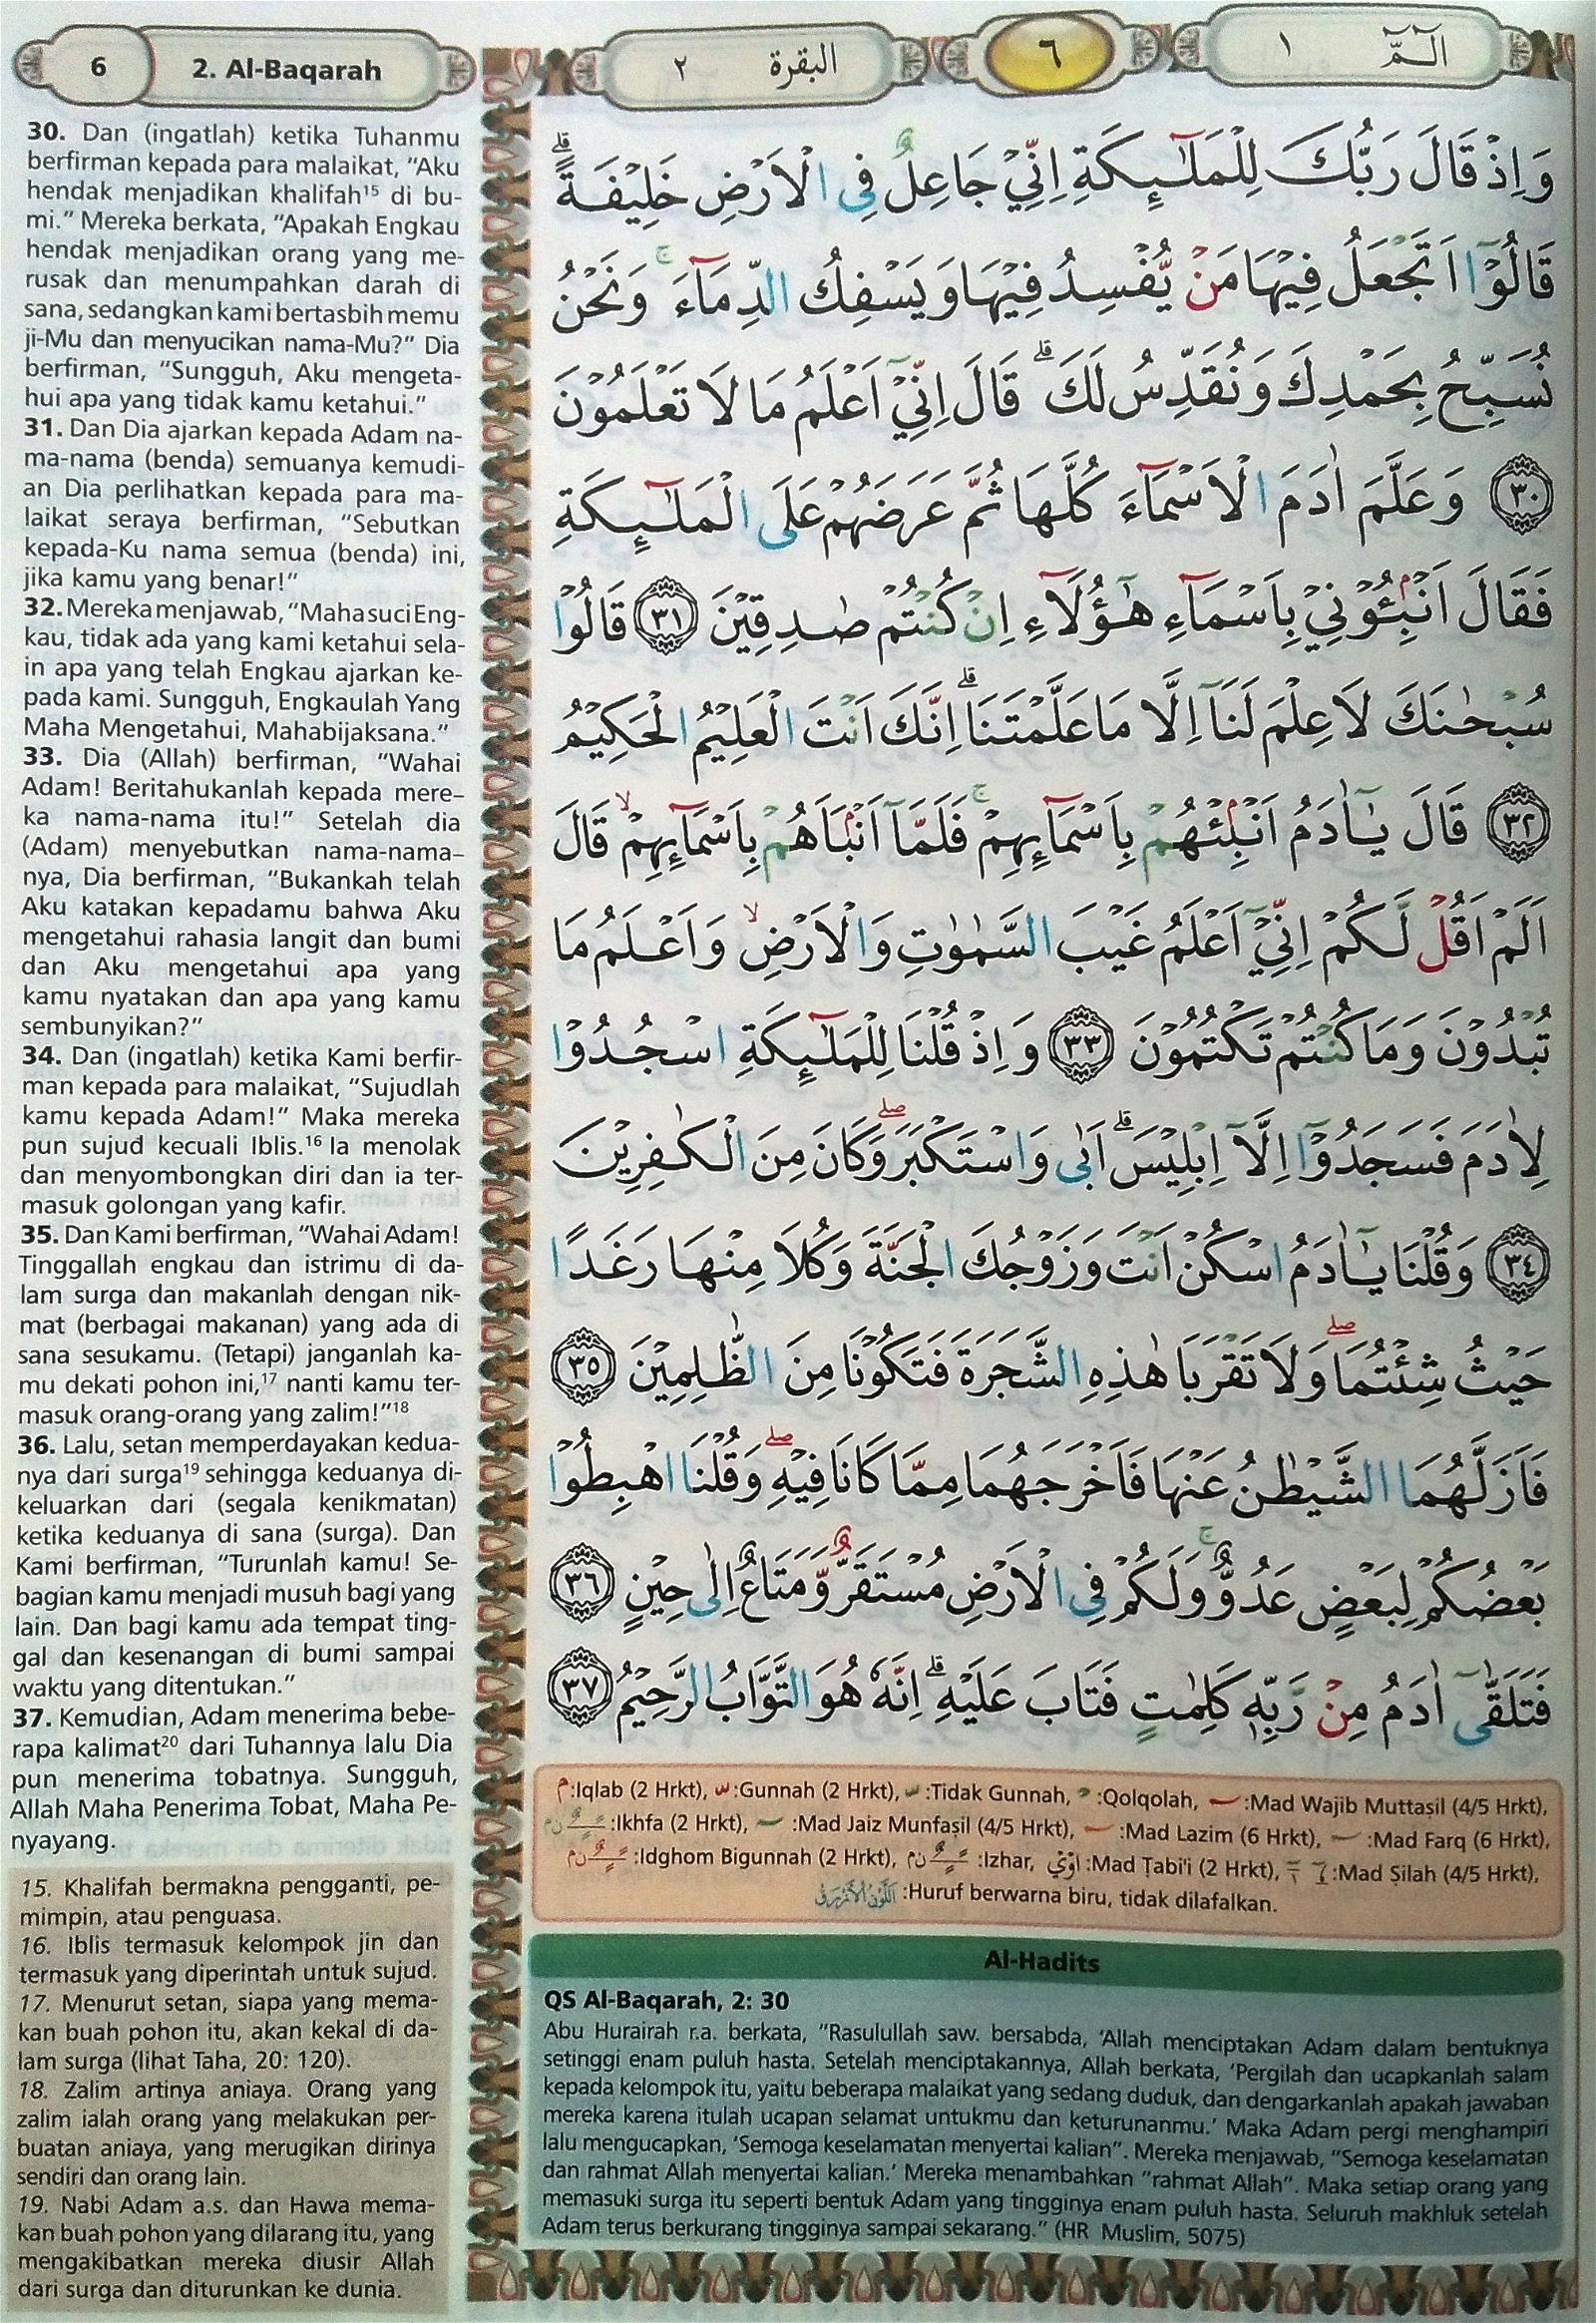 6
2. Al-Baqarah
البقرة ٢
٦
الۤمّۤ ١
30. Dan (ingatlah) ketika Tuhanmu
berfirman kepada para malaikat, “Aku
hendak menjadikan khalifah¹⁵ di bu-
mi.” Mereka berkata, “Apakah Engkau
hendak menjadikan orang yang me-
rusak dan menumpahkan darah di
sana, sedangkan kami bertasbih memu
ji-Mu dan menyucikan nama-Mu?” Dia
berfirman, “Sungguh, Aku mengeta-
hui apa yang tidak kamu ketahui.”
31. Dan Dia ajarkan kepada Adam na-
ma-nama (benda) semuanya kemudi-
an Dia perlihatkan kepada para ma-
laikat seraya berfirman, “Sebutkan
kepada-Ku nama semua (benda) ini,
jika kamu yang benar!”
32. Mereka menjawab, “Mahasuci Eng-
kau, tidak ada yang kami ketahui sela-
in apa yang telah Engkau ajarkan ke-
pada kami. Sungguh, Engkaulah Yang
Maha Mengetahui, Mahabijaksana.”
33. Dia (Allah) berfirman, “Wahai
Adam! Beritahukanlah kepada mere-
ka nama-nama itu!” Setelah dia
(Adam) menyebutkan nama-nama-
nya, Dia berfirman, “Bukankah telah
Aku katakan kepadamu bahwa Aku
mengetahui rahasia langit dan bumi
dan Aku mengetahui apa yang
kamu nyatakan dan apa yang kamu
sembunyikan?”
34. Dan (ingatlah) ketika Kami berfir-
man kepada para malaikat, “Sujudlah
kamu kepada Adam!” Maka mereka
pun sujud kecuali Iblis.¹⁶ Ia menolak
dan menyombongkan diri dan ia ter-
masuk golongan yang kafir.
35. Dan Kami berfirman, “Wahai Adam!
Tinggallah engkau dan istrimu di da-
lam surga dan makanlah dengan nik-
mat (berbagai makanan) yang ada di
sana sesukamu. (Tetapi) janganlah ka-
mu dekati pohon ini,¹⁷ nanti kamu ter-
masuk orang-orang yang zalim!”¹⁸
36. Lalu, setan memperdayakan kedua-
nya dari surga¹⁹ sehingga keduanya di-
keluarkan dari (segala kenikmatan)
ketika keduanya di sana (surga). Dan
Kami berfirman, “Turunlah kamu! Se-
bagian kamu menjadi musuh bagi yang
lain. Dan bagi kamu ada tempat ting-
gal dan kesenangan di bumi sampai
waktu yang ditentukan.”
37. Kemudian, Adam menerima bebe-
rapa kalimat²⁰ dari Tuhannya lalu Dia
pun menerima tobatnya. Sungguh,
Allah Maha Penerima Tobat, Maha Pe-
nyayang.
15. Khalifah bermakna pengganti, pe-
mimpin, atau penguasa.
16. Iblis termasuk kelompok jin dan
termasuk yang diperintah untuk sujud.
17. Menurut setan, siapa yang mema-
kan buah pohon itu, akan kekal di da-
lam surga (lihat Taha, 20: 120).
18. Zalim artinya aniaya. Orang yang
zalim ialah orang yang melakukan per-
buatan aniaya, yang merugikan dirinya
sendiri dan orang lain.
19. Nabi Adam a.s. dan Hawa mema-
kan buah pohon yang dilarang itu, yang
mengakibatkan mereka diusir Allah
dari surga dan diturunkan ke dunia.
وَاِذْ قَالَ رَبُّكَ لِلْمَلٰۤىِٕكَةِ اِنِّيْ جَاعِلٌ فِى الْاَرْضِ خَلِيْفَةً ۗ
قَالُوْٓا اَتَجْعَلُ فِيْهَا مَنْ يُّفْسِدُ فِيْهَا وَيَسْفِكُ الدِّمَاۤءَ ۚ وَنَحْنُ
نُسَبِّحُ بِحَمْدِكَ وَنُقَدِّسُ لَكَ ۗ قَالَ اِنِّيْٓ اَعْلَمُ مَا لَا تَعْلَمُوْنَ
٣٠ وَعَلَّمَ اٰدَمَ الْاَسْمَاۤءَ كُلَّهَا ثُمَّ عَرَضَهُمْ عَلَى الْمَلٰۤىِٕكَةِ
فَقَالَ اَنْۢبِـُٔوْنِيْ بِاَسْمَاۤءِ هٰٓؤُلَاۤءِ اِنْ كُنْتُمْ صٰدِقِيْنَ ٣١ قَالُوْا
سُبْحٰنَكَ لَا عِلْمَ لَنَآ اِلَّا مَا عَلَّمْتَنَا ۗ اِنَّكَ اَنْتَ الْعَلِيْمُ الْحَكِيْمُ
٣٢ قَالَ يٰٓاٰدَمُ اَنْۢبِئْهُمْ بِاَسْمَاۤىِٕهِمْ ۚ فَلَمَّآ اَنْۢبَاَهُمْ بِاَسْمَاۤىِٕهِمْ ۙ قَالَ
اَلَمْ اَقُلْ لَّكُمْ اِنِّيْٓ اَعْلَمُ غَيْبَ السَّمٰوٰتِ وَالْاَرْضِ ۙ وَاَعْلَمُ مَا
تُبْدُوْنَ وَمَا كُنْتُمْ تَكْتُمُوْنَ ٣٣ وَاِذْ قُلْنَا لِلْمَلٰۤىِٕكَةِ اسْجُدُوْا
لِاٰدَمَ فَسَجَدُوْٓا اِلَّآ اِبْلِيْسَ ۗ اَبٰى وَاسْتَكْبَرَ ۖ وَكَانَ مِنَ الْكٰفِرِيْنَ
٣٤ وَقُلْنَا يٰٓاٰدَمُ اسْكُنْ اَنْتَ وَزَوْجُكَ الْجَنَّةَ وَكُلَا مِنْهَا رَغَدًا
حَيْثُ شِئْتُمَا ۖ وَلَا تَقْرَبَا هٰذِهِ الشَّجَرَةَ فَتَكُوْنَا مِنَ الظّٰلِمِيْنَ ٣٥
فَاَزَلَّهُمَا الشَّيْطٰنُ عَنْهَا فَاَخْرَجَهُمَا مِمَّا كَانَا فِيْهِ ۖ وَقُلْنَا اهْبِطُوْا
بَعْضُكُمْ لِبَعْضٍ عَدُوٌّ ۚ وَلَكُمْ فِى الْاَرْضِ مُسْتَقَرٌّ وَّمَتَاعٌ اِلٰى حِيْنٍ ٣٦
فَتَلَقّٰٓى اٰدَمُ مِنْ رَّبِّهٖ كَلِمٰتٍ فَتَابَ عَلَيْهِ ۗ اِنَّهٗ هُوَ التَّوَّابُ الرَّحِيْمُ ٣٧
:Iqlab (2 Hrkt), :Gunnah (2 Hrkt), :Tidak Gunnah, :Qolqolah, :Mad Wajib Muttaṣil (4/5 Hrkt),
:Ikhfa (2 Hrkt), :Mad Jaiz Munfaṣil (4/5 Hrkt), :Mad Lazim (6 Hrkt), :Mad Farq (6 Hrkt),
:Idghom Bigunnah (2 Hrkt), :Izhar, :Mad Ṭabi'i (2 Hrkt), :Mad Ṣilah (4/5 Hrkt),
:Huruf berwarna biru, tidak dilafalkan.
Al-Hadits
QS Al-Baqarah, 2: 30
Abu Hurairah r.a. berkata, “Rasulullah saw. bersabda, ‘Allah menciptakan Adam dalam bentuknya
setinggi enam puluh hasta. Setelah menciptakannya, Allah berkata, ‘Pergilah dan ucapkanlah salam
kepada kelompok itu, yaitu beberapa malaikat yang sedang duduk, dan dengarkanlah apakah jawaban
mereka karena itulah ucapan selamat untukmu dan keturunanmu.’ Maka Adam pergi menghampiri
lalu mengucapkan, ‘Semoga keselamatan menyertai kalian”. Mereka menjawab, “Semoga keselamatan
dan rahmat Allah menyertai kalian.’ Mereka menambahkan “rahmat Allah”. Maka setiap orang yang
memasuki surga itu seperti bentuk Adam yang tingginya enam puluh hasta. Seluruh makhluk setelah
Adam terus berkurang tingginya sampai sekarang.” (HR Muslim, 5075)